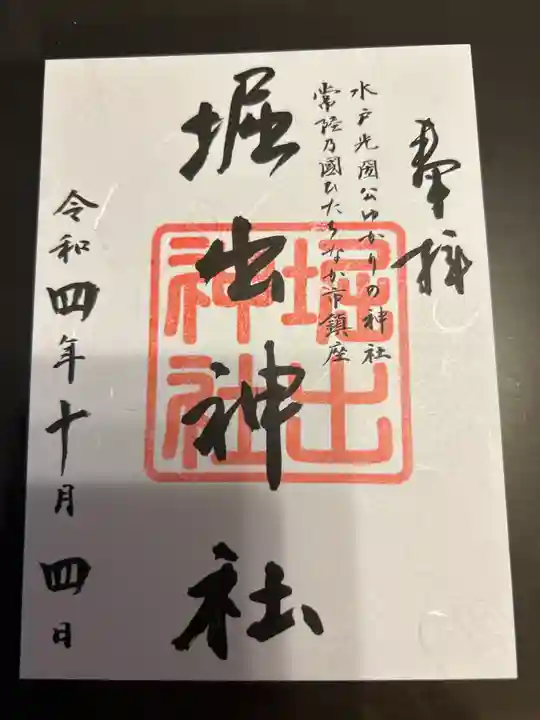 奉拝
水戸光圀公ゆかりの神社
常陸乃國ひたちなか市鎮座
堀出神社
堀出
神社
令和四年十月四日